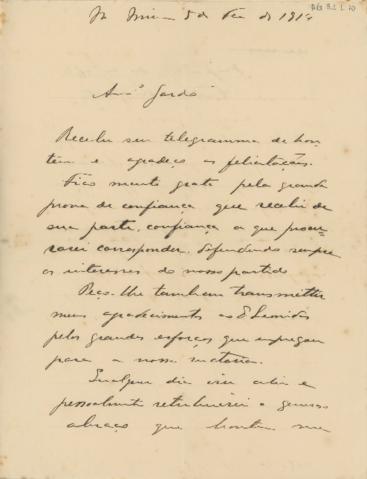 5 de de 1914
Am.º Gordo
Recebi seu telegramma de hon
tem e agradeço as felicitações.
Fico muito grato pela grande
prova de confiança que recebi de
sua parte, confiança a que procu-
rarei corresponder, defendendo sempre
os interesses do nosso partido
Peço-lhe tambem transmittir
meus agradecimentos ao
pelos grandes esforços que empregou
para a nossa victoria.
Qualquer dia irei ahi e
pessoalmente retribuirei o
abraço que hontem me